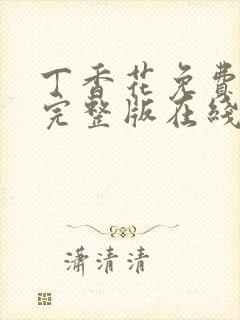 丁香花免费
完整版在线
潇清清